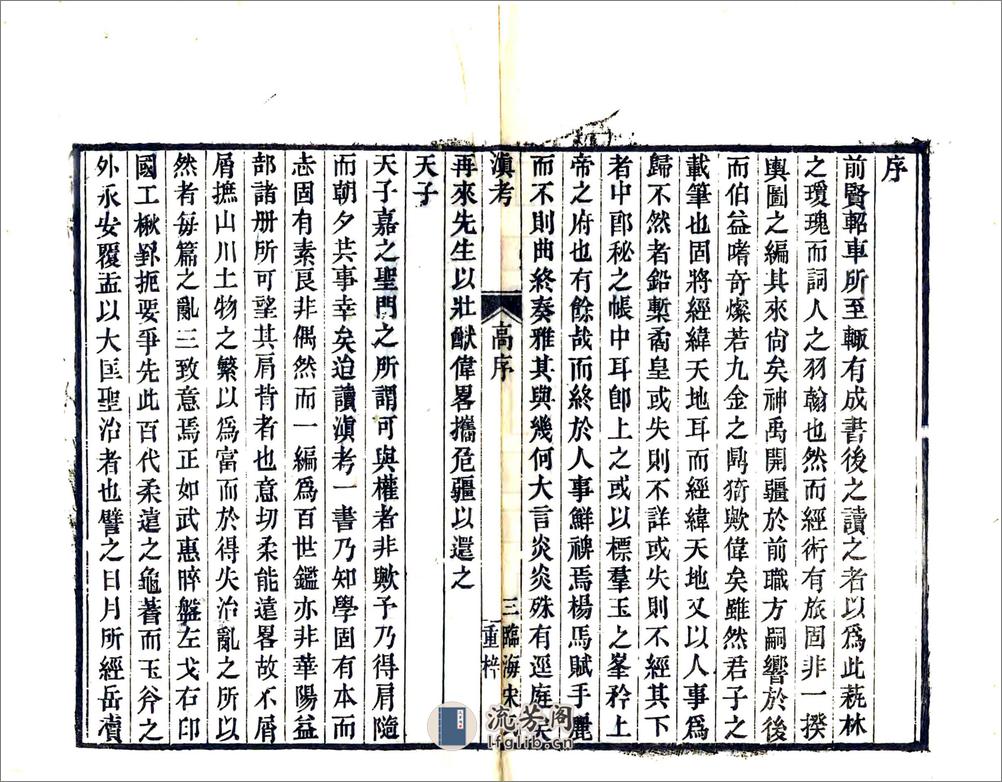 序
前賢軺車所至輙有成書後之讀之者以爲此蓺林
之瓊瑰而詞人之羽翰也然而經術有旅固非一揆
輿圖之編其來尙矣神禹開疆於前職方嗣響於後
而伯益嗜奇燦若九金之鼎猗歟偉矣雖然君子之
載筆也固將經緯天地耳而經緯天地又以人事爲
歸不然者鉛槧矞皇或失則不詳或失則不經其下
者中郎秘之帳中耳卽上之或以標羣玉之峯矜上
帝之府也有餘哉而終於人事鮮裨焉楊馬賦手麗
而不則曲終奏雅其與幾何大言炎炎殊有逕庭矣
滇考
高序
三
臨海宋
重梓
再來先生以壯猷偉畧攜危疆以還之
天子
天子嘉之聖門之所謂可與權者非歟予乃得肩隨
而朝夕共事幸矣迨讀滇考一書乃知學固有本而
志固有素良非偶然而一編爲百世鑑亦非華陽益
部諸册所可望其肩背者也意切柔能遠畧故不屑
屑摭山川土物之繁以爲富而於得失治亂之所以
然者每篇之亂三致意焉正如武惠晬盤左戈右印
國工楸𥐻扼要爭先此百代柔遠之龜蓍而玉斧之
外永安覆盂以大匡聖治者也譬之日月所經岳瀆
流芳阁
lfglib.cn